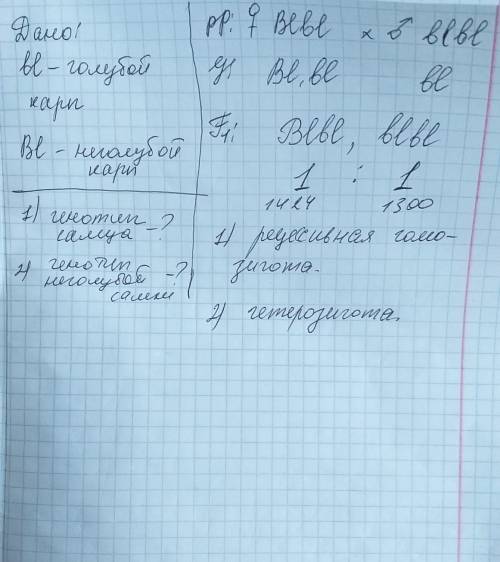 Дано:
bl – голубой
карп
Bl – неголубой
карп
1) генотип
самца – ?
2) генотип
неголубой – ?
самки
PP: ♀ Blbl × ♂ blbl
Bl, bl bl
F1: Blbl, blbl
1 : 1
1424 1300
1) рецессивная гомо-
зигота.
2) гетерозигота.